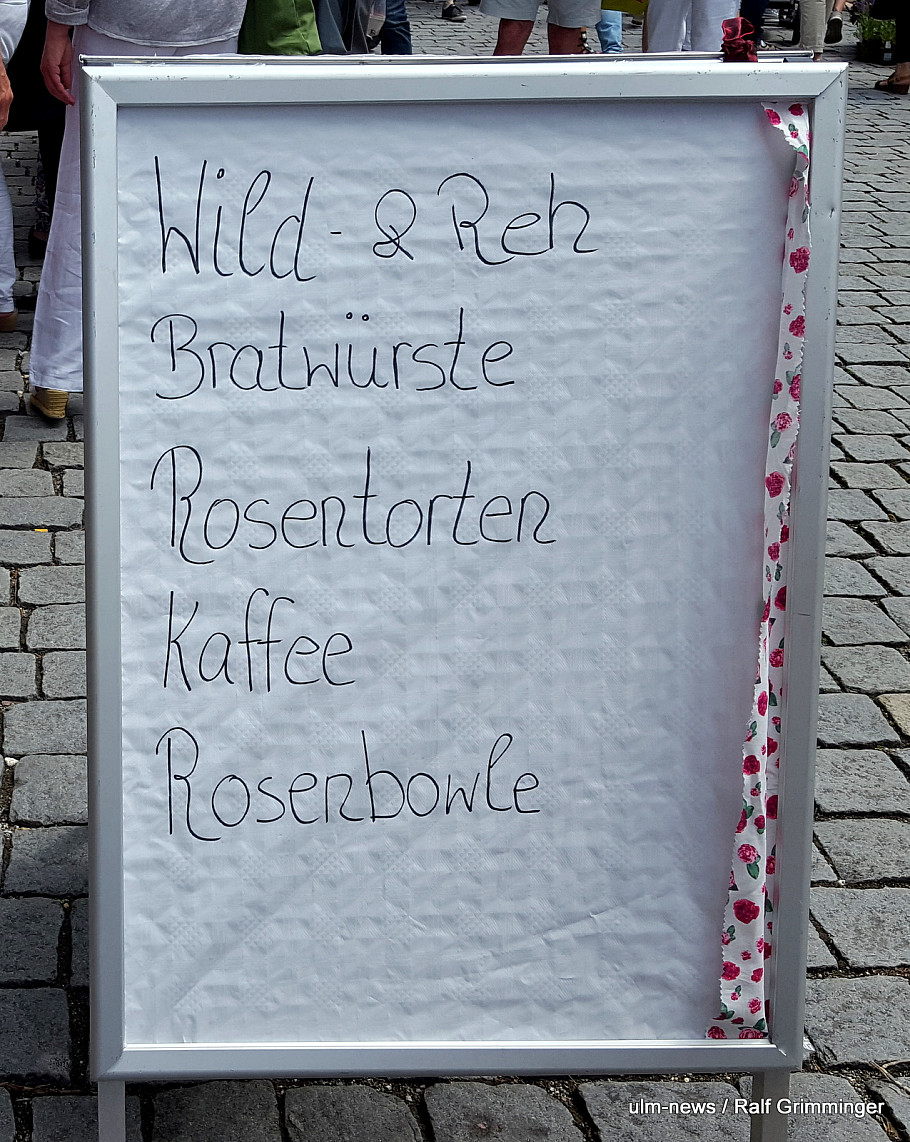 Wild- & Reh
Bratwürste
Rosentorten
Kaffee
Rosenbowle
ulm-news / Ralf Grimminger